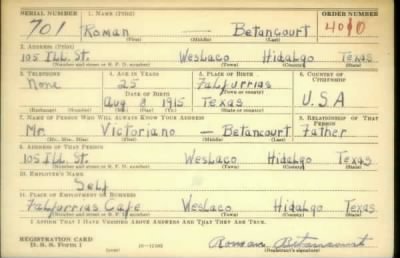 SERIAL NUMBER 1. NAME (Print) ORDER NUMBER
701 Roman — Betancourt
(First) (Middle) (Last)
2. ADDRESS (Print)
105 Ill. St. Weslaco Hidalgo Texas
(Number and street or R. F. D. number) (Town) (County) (State)
3. TELEPHONE 4. AGE IN YEARS 5. PLACE OF BIRTH 6. COUNTRY OF CITIZENSHIP
None 25 Falfurrias
DATE OF BIRTH (Town or county)
Aug 8 1915 Texas U.S.A
(Exchange) (Number) (Mo.) (Day) (Yr.) (State or country)
7. NAME OF PERSON WHO WILL ALWAYS KNOW YOUR ADDRESS 8. RELATIONSHIP OF THAT PERSON
Mr. Victoriano — Betancourt Father
(Mr., Mrs., Miss) (First) (Middle) (Last)
9. ADDRESS OF THAT PERSON
105 Ill. St. Weslaco Hidalgo Texas
(Number and street or R. F. D. number) (Town) (County) (State)
10. EMPLOYER'S NAME
Self
11. PLACE OF EMPLOYMENT OR BUSINESS
Falfurrias Cafe Weslaco Hidalgo Texas
(Number and street or R. F. D. number) (Town) (County) (State)
I AFFIRM THAT I HAVE VERIFIED ABOVE ANSWERS AND THAT THEY ARE TRUE.
REGISTRATION CARD
D. S. S. Form 1 Roman Betancourt
(Registrant's signature)